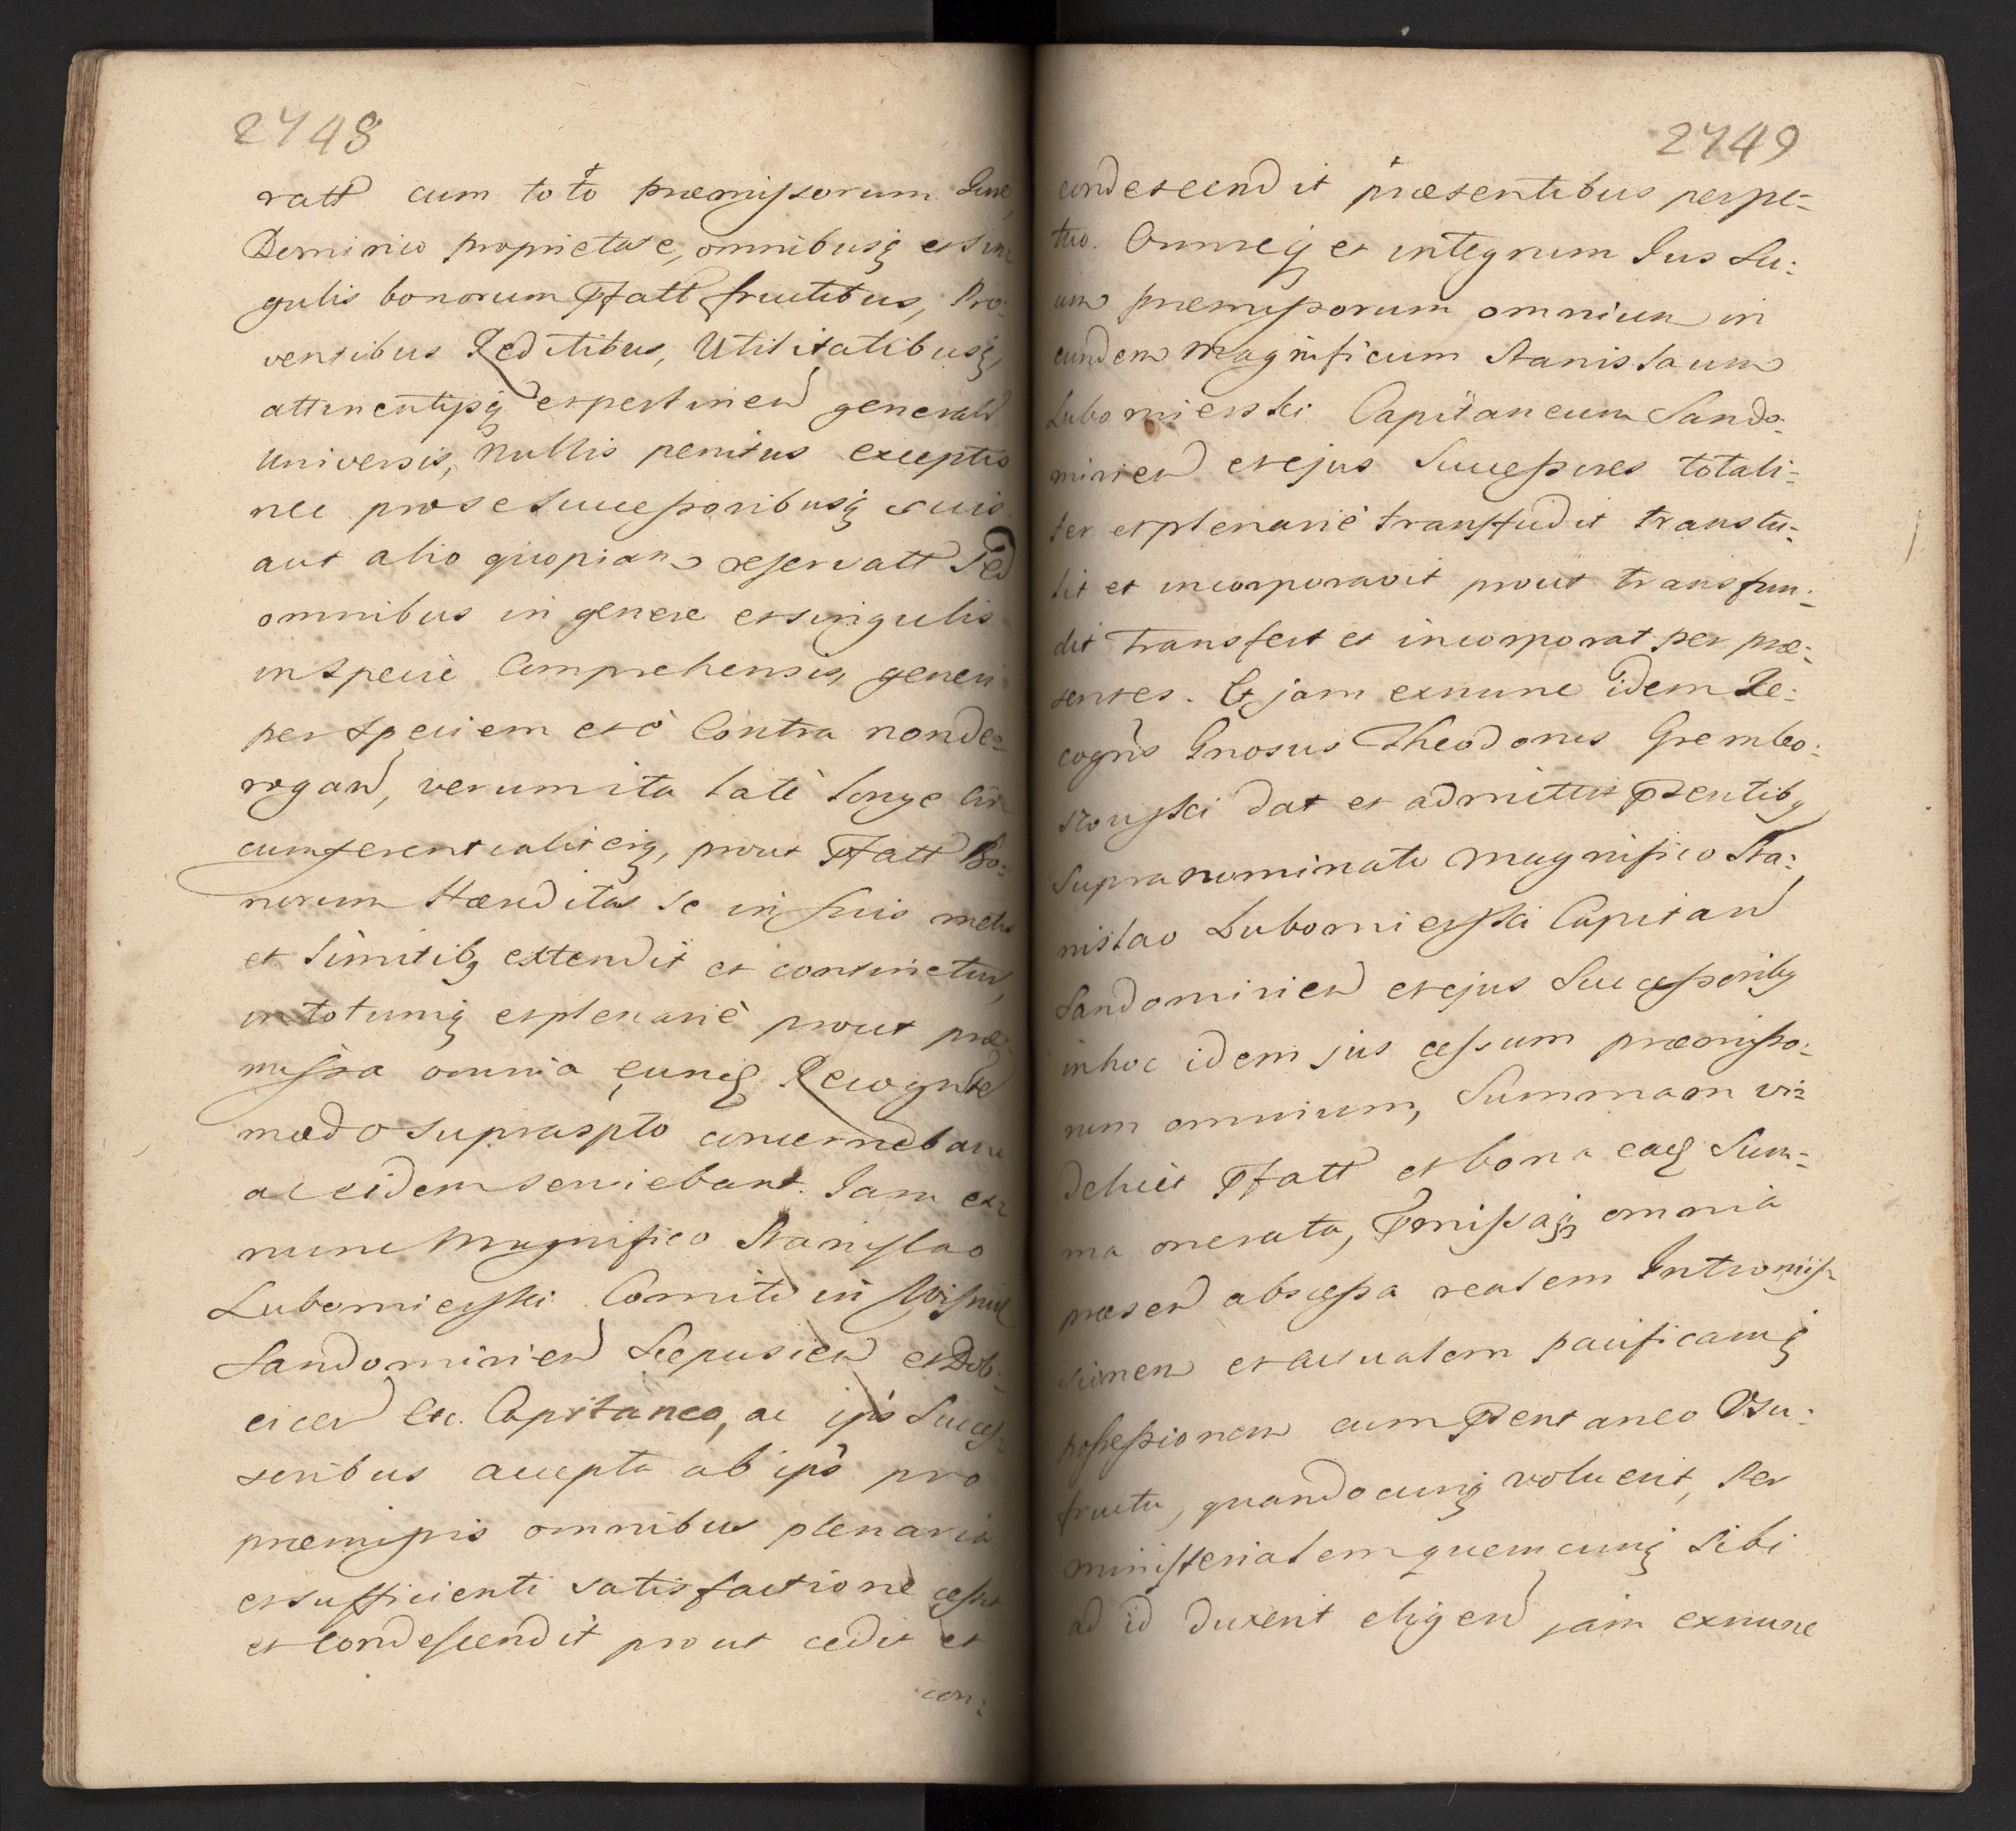 2748
ratt cum toto præmissorum Jure,
Dominio proprietate, omnibusq et sin
gulis bonorum Pfatt fructibus, Pro:
ventibus Reditibus, Utilitatibusq,
attinentysq et pertinen generalr
Universis, Nullis penitus exceptis
nec pro se Successoribusq suis
aut alio quopiam reservatt Sed
omnibus in genere et singulis
in Specie Comprehensis, generi
per Speciem et è Contra non de-
rogan, verum ita latè longe Cir
cumferentialiterq, prout Pfatt Bo:
norum Hæreditas se in suis metis
et limitibq extendit et continetur,
in totumq et plenariè prout præ
missa omnia eunq Recognte
modo supraspto concernebant
ac eidem serviebant. Jam ex-
nunc Magnifico Stanislao
Lubomierski Comiti in Wisnic
Sandomirien Scepusien et Dob:
cicen Etc. Capitaneo, ac ips Succes:
soribus accepta ab ipso pro
præmissis omnibus plenaria
et sufficienti satisfactione cessit
et Condescendit prout cedit et
con:
2749
condescendit præsentibus perpe-
tuo. Omneq et integrum Jus Su:
um præmissorum omnium in
eundem Magnificum Stanislaum
Lubomierski Capitaneum Sando:
mirien et ejus Successores totali-
ter et plenariè transfudit transtu-
lit et incorporavit prout transfun:
dit transfert et incorporat per præ:
sentes. Et jam exnunc idem Re:
cogns Gnosus Theodorus Grembo:
szowski dat et admittit Psentibq
Supranominato Magnifico Sta:
nislao Lubomierski Capitan
Sandomirien et ejus Successoribq
in hoc idem jus cessum præmisso:
rum omnium, Summam vi-
delicet Pfatt et bona eaq Sum-
ma onerata, Pmissaq omnia
præsen abscessa realem Intromis-
sionem et actualem pacificamq
possessionem cum Psentaneo Vsu:
fructu, quandocunq voluerit, Per
ministerialem quemcunq Sibi
ad id duxerit eligen jam exnunc